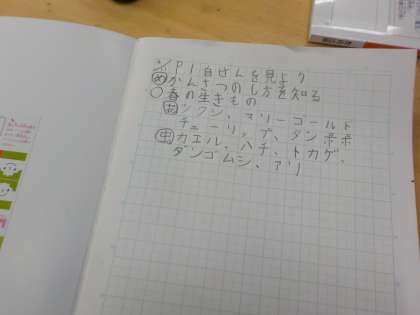 ※P1自ぜんを見よう
めかんさつのしかたを知る
○春の生きもの
花ツクシ、マリーゴールド
チューリップ、タンポポ
虫カエル、ハチ、トカゲ、
ダンゴムシ、アリ